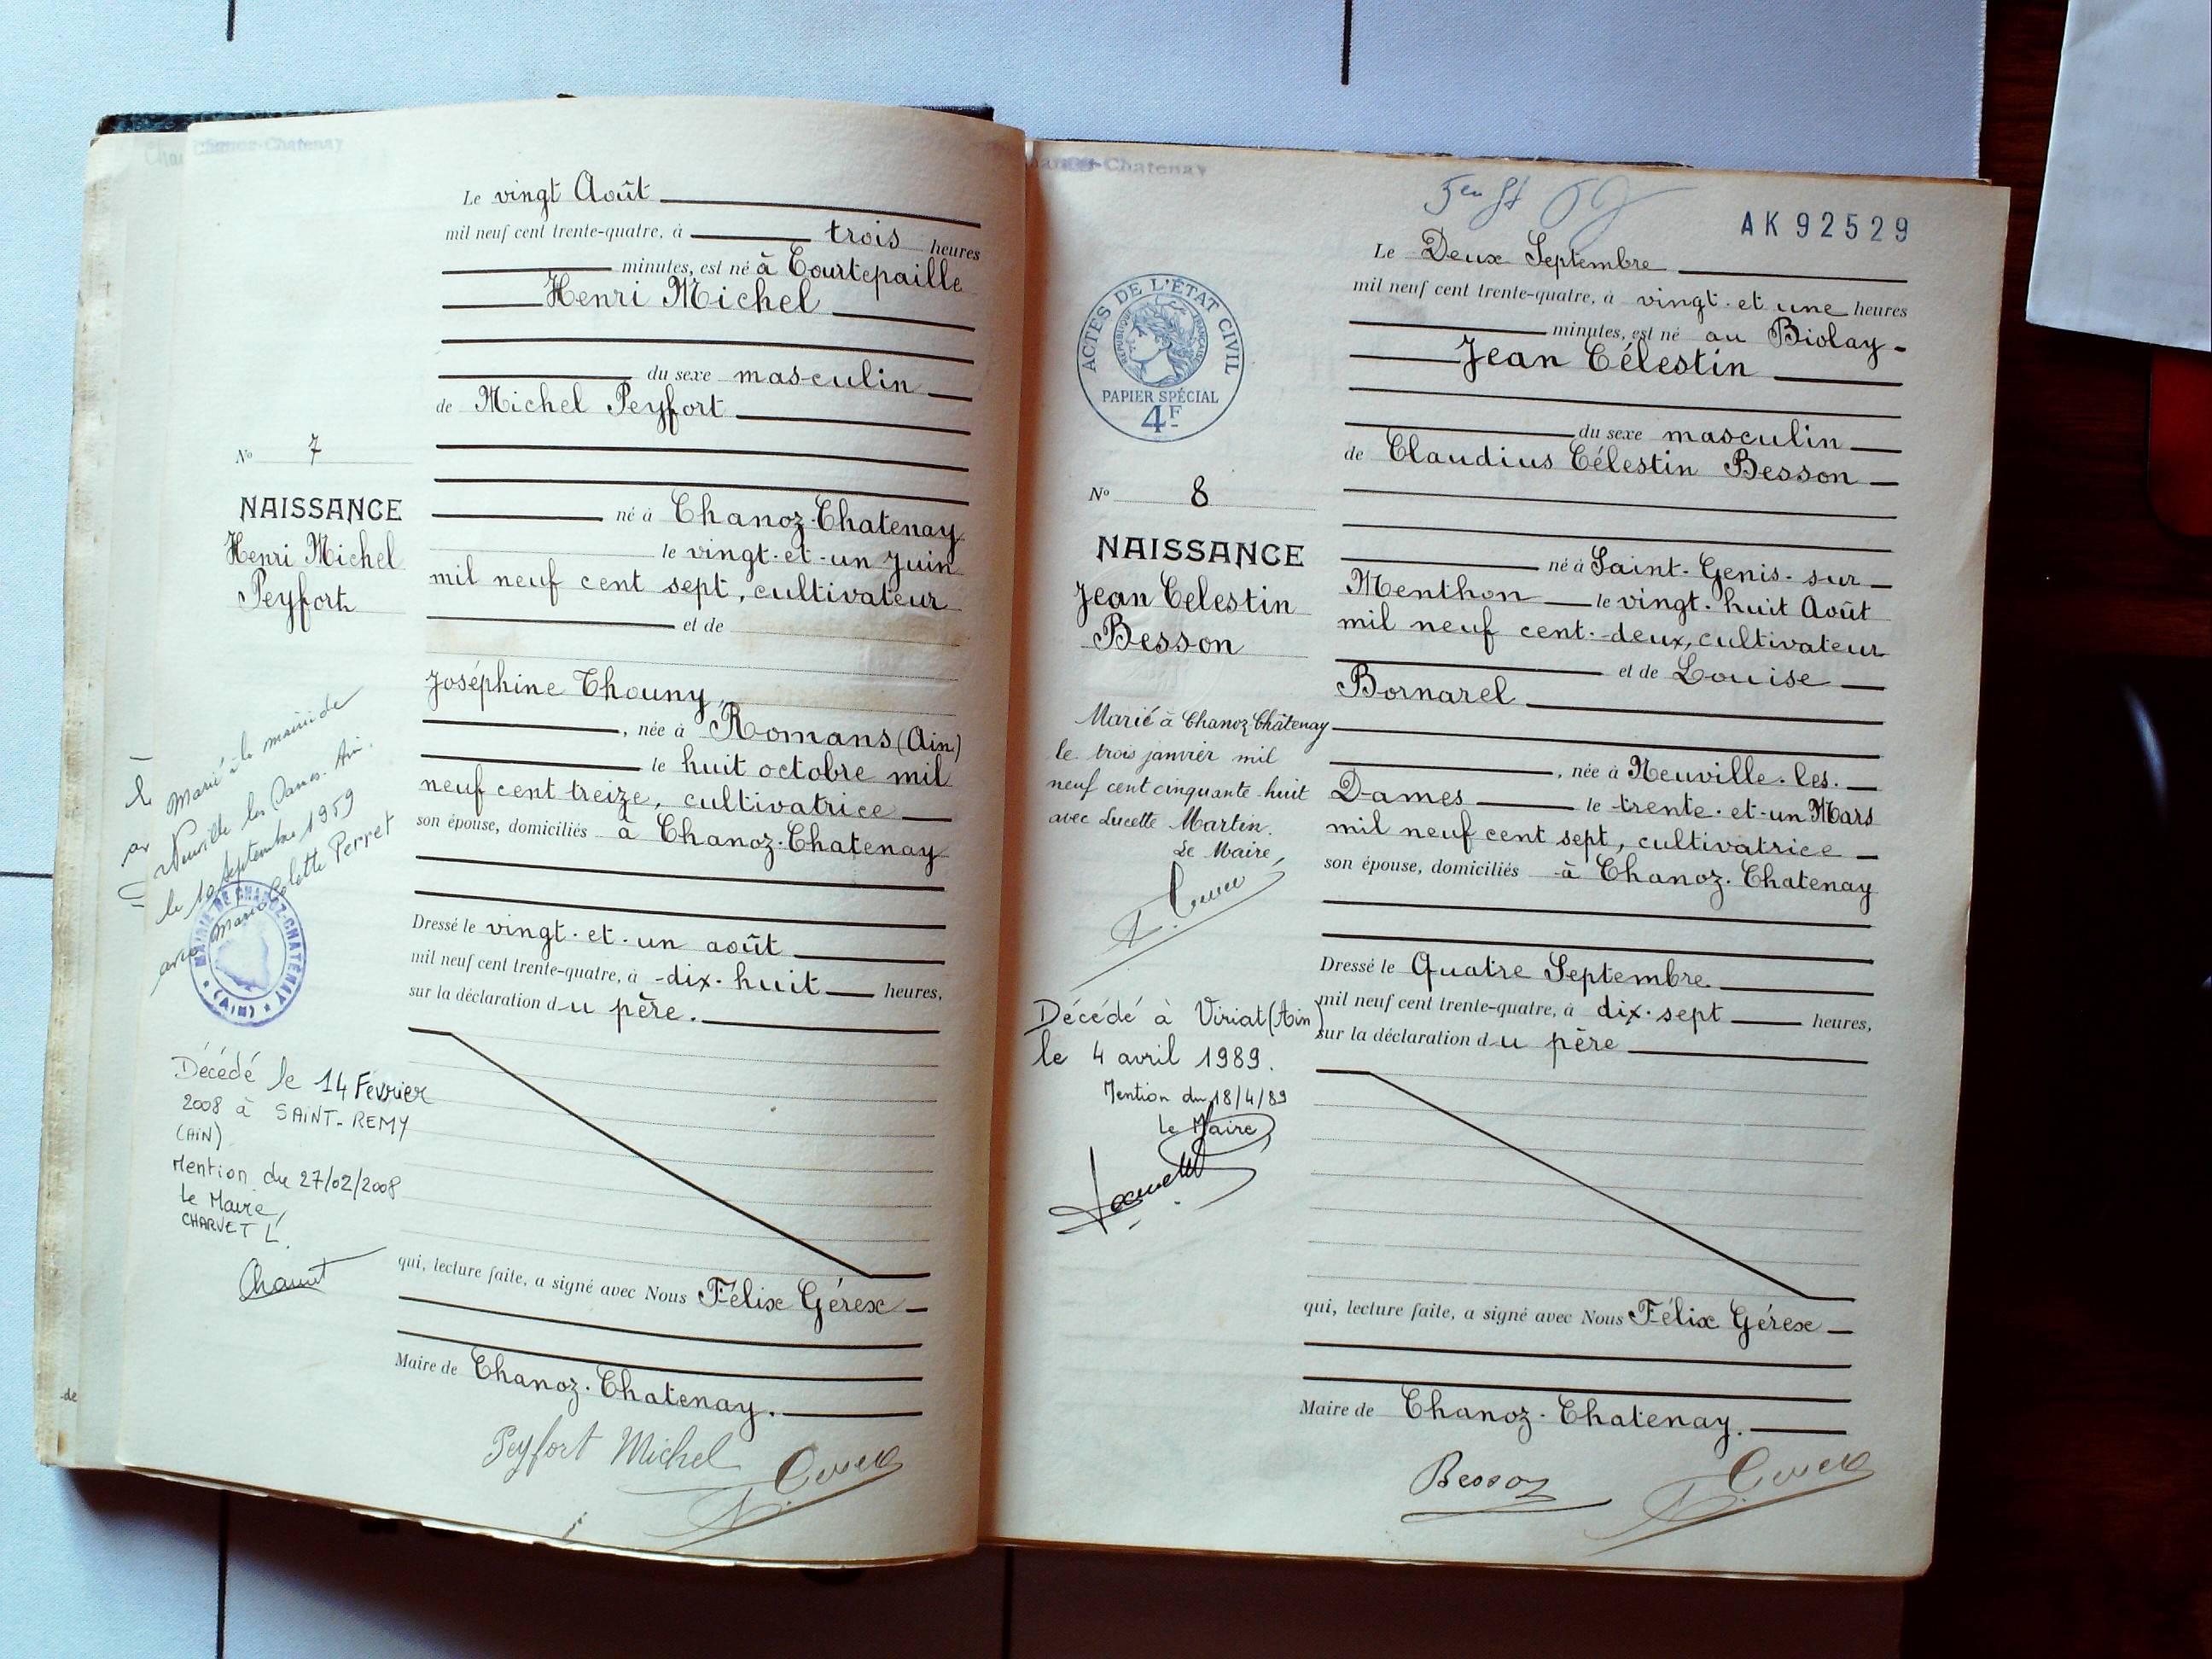 Chanoz-Chatenay
Le vingt Août
mil neuf cent trente-quatre, à trois heures
minutes, est né à Courtepaille
Henri Michel
du sexe masculin
de Michel Peyfort
No 7
NAISSANCE
Henri Michel
Peyfort
né à Chanoz-Chatenay
le vingt-et-un Juin
mil neuf cent sept, cultivateur
et de
Joséphine Chouny,
, née à Romans (Ain)
le huit octobre mil
neuf cent treize, cultivatrice
son épouse, domiciliés à Chanoz-Chatenay
Marié à la mairie de
Neuville les Dames. Ain.
le 19 Septembre 1959
avec Marie Colette Perret
MAIRIE DE CHANOZ-CHATENAY
(AIN)
Dressé le vingt-et-un août
mil neuf cent trente-quatre, à dix-huit heures,
sur la déclaration du père.
Décédé le 14 Février
2008 à SAINT-REMY
(AIN)
Mention du 27/02/2008
Le Maire,
CHARVET L.
Charvet
qui, lecture faite, a signé avec Nous Félix Gérex
Maire de Chanoz-Chatenay.
Peyfort Michel
-de
Chanoz-Chatenay
AK 92529
Le Deux Septembre
mil neuf cent trente-quatre, à vingt-et une heures
minutes, est né au Biolay-
Jean Célestin
ACTES DE L'ÉTAT CIVIL
RÉPUBLIQUE FRANÇAISE
PAPIER SPÉCIAL
4F
du sexe masculin
de Claudius Célestin Besson
No 8
NAISSANCE
Jean Célestin
Besson
né à Saint-Genis-sur-
Menthon le vingt-huit Août
mil neuf cent-deux, cultivateur
et de Louise
Bornarel
, née à Neuville-les-
Dames le trente-et-un Mars
mil neuf cent sept, cultivatrice
son épouse, domiciliés à Chanoz-Chatenay
Marié à Chanoz-Châtenay
le trois janvier mil
neuf cent cinquante-huit
avec Lucette Martin.
Le Maire,
Dressé le Quatre Septembre
mil neuf cent trente-quatre, à dix-sept heures,
sur la déclaration du père
Décédé à Viriat (Ain)
le 4 avril 1989.
Mention du 18/4/89
Le Maire,
qui, lecture faite, a signé avec Nous Félix Gérex
Maire de Chanoz-Chatenay.
Besson